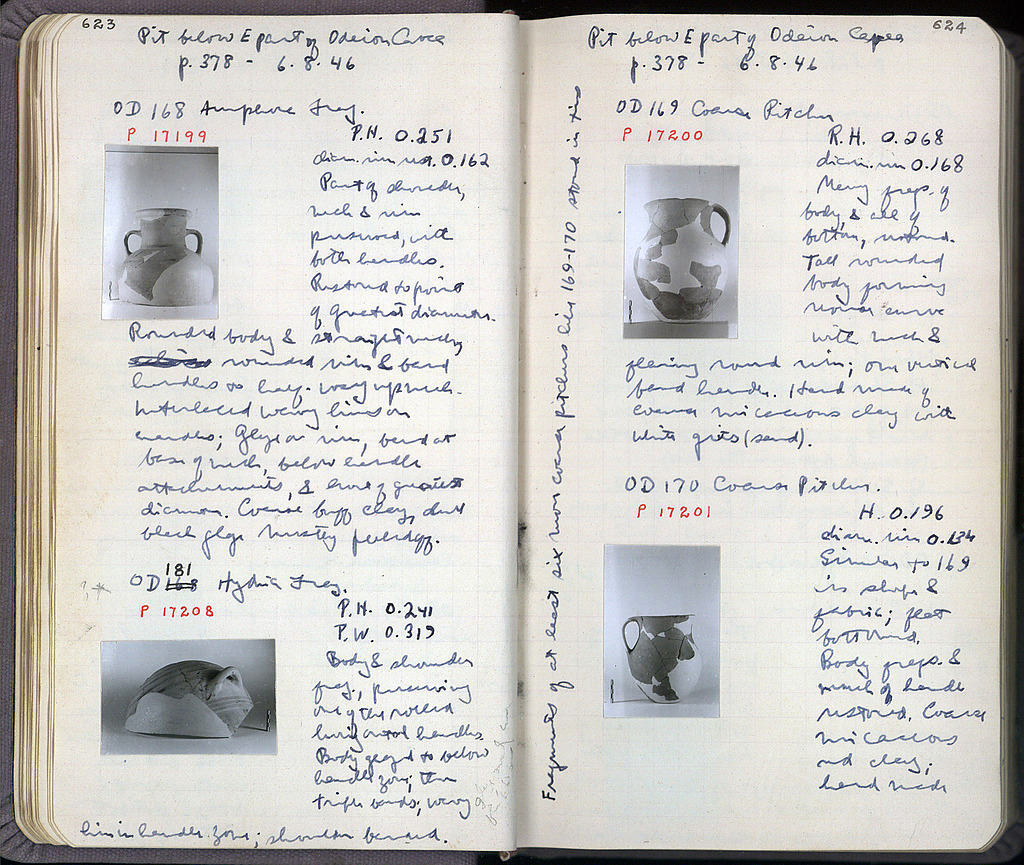 623
Pit below E part of Odeion Cavea
p. 378 - 6.8.46
OD 168 Amphora Frag.
P 17199
P.H. 0.251
diam. rim rest. 0.162
Part of shoulder,
neck & rim
preserved, with
both handles.
Restored to point
of greatest diameter.
Rounded body & straight neck,
rounded rim & band
handles to half-way up neck.
Interlaced wavy lines on
handles; Glaze on rim, band at
base of neck, below handle
attachments, & line of greatest
diameter. Coarse buff clay, dull
black glaze mostly peeled off.
OD 181 168 Hydria Frag.
P 17208
P.H. 0.241
P.W. 0.319
Body & shoulder
frag., preserving
one of the rolled
horizontal handles
Body glazed to below
handle zone; then
triple bands; wavy
line in handle zone; shoulder banded.
624
Pit below E part of Odeion Cavea
p. 378 - 6.8.46
OD 169 Coarse Pitcher
P 17200
R.H. 0.268
diam. rim 0.168
Many frags. of
body, & all of
bottom, restored.
Tall rounded
body forming
curve
with neck &
flaring round rim; one vertical
band handle. Hand made of
coarse micaceous clay with
white grits (sand).
OD 170 Coarse Pitcher.
P 17201
H. 0.196
diam. rim 0.134
Similar to 169
in shape &
fabric; flat
bottomed.
Body frags. &
much of handle
restored. Coarse
micaceous
red clay;
hand made
Fragments of at least six more coarse pitchers like 169-170 stored in tins